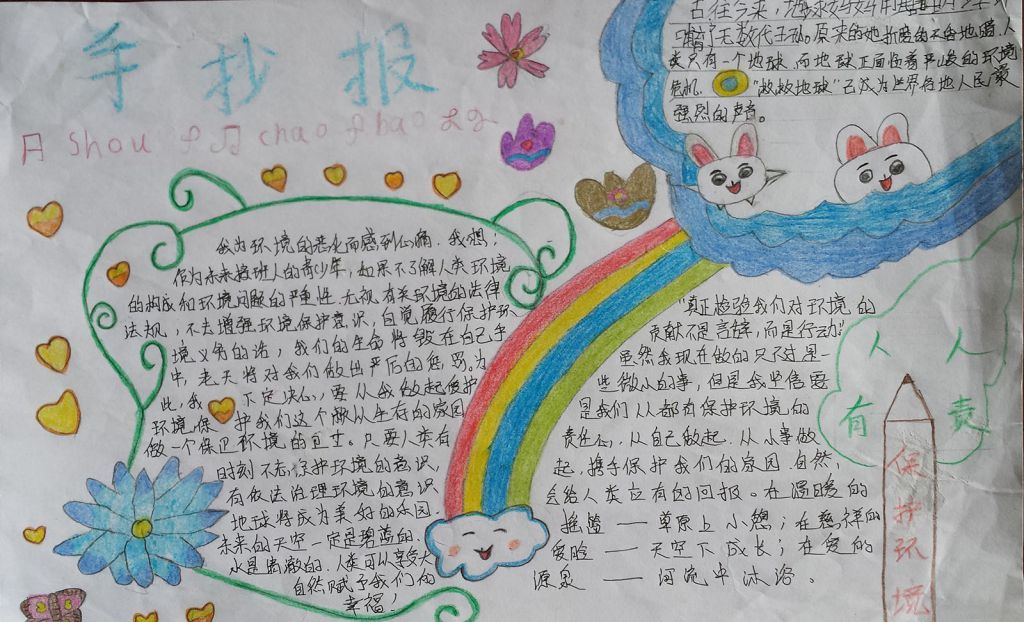 手抄报
shou chao bao
古往今来,地球妈妈用
哺育了无数代子孙。原来的她
类只有一个地球,而地球正面临着严峻的环境
危机。“救救地球”已成为世界各地人民最
强烈的声音。
我为环境的恶化而感到心痛,我想:
作为未来接班人的青少年,如果不了解人类环境
的构成和环境问题的严重性,无视有关环境的法律
法规,不去增强环境保护意识,自觉履行保护环
境义务的话,我们的生命将毁在自己手
中,老天将对我们做出严厉的惩罚。为
此,我下定决心,要从我做起爱护
环境,保护我们这个赖以生存的家园
做一个保卫环境的卫士。只要人类有
时刻不忘保护环境的意识,
有依法治理环境的意识
地球将成为美好的乐园,
未来的天空一定是碧蓝的,
水是清澈的,人类可以享受大
自然赋予我们的
幸福!
“真正检验我们对环境的
贡献不是言辞,而是行动”
虽然我现在做的只不过是一
些微小的事,但是我坚信要
是我们人人都有保护环境的
责任心,从自己做起,从小事做
起,携手保护我们的家园,自然
会给人类应有的回报。在温暖的
摇篮——草原上小憩;在慈祥的
爱脸——天空下成长;在爱的
源泉——河流中沐浴。
人人
有责
保护环境